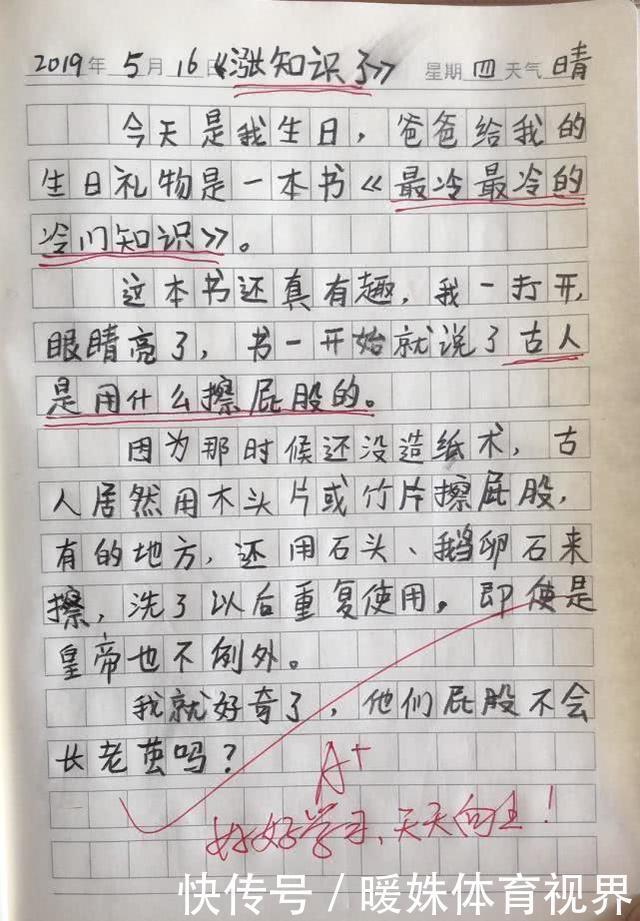 2019年5月16日《涨知识了》 星期四天气晴
今天是我生日，爸爸给我的
生日礼物是一本书《最冷最冷的
冷门知识》。
这本书还真有趣，我一打开，
眼睛亮了，书一开始就说了古人
是用什么擦屁股的。
因为那时候还没造纸术，古
人居然用木头片或竹片擦屁股，
有的地方，还用石头、鹅卵石来
擦，洗了以后重复使用。即使是
皇帝也不例外。
我就好奇了，他们屁股不会
长老茧吗？
A+
好好学习、天天向上！
快传号/暖姝体育视界